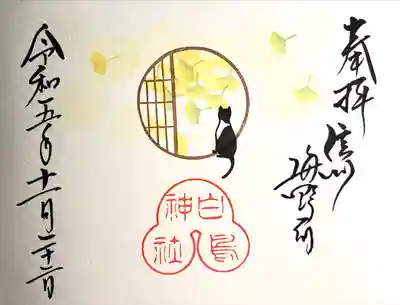 奉拝
信州
海野宿
白鳥
神社
令和五年十一月二十